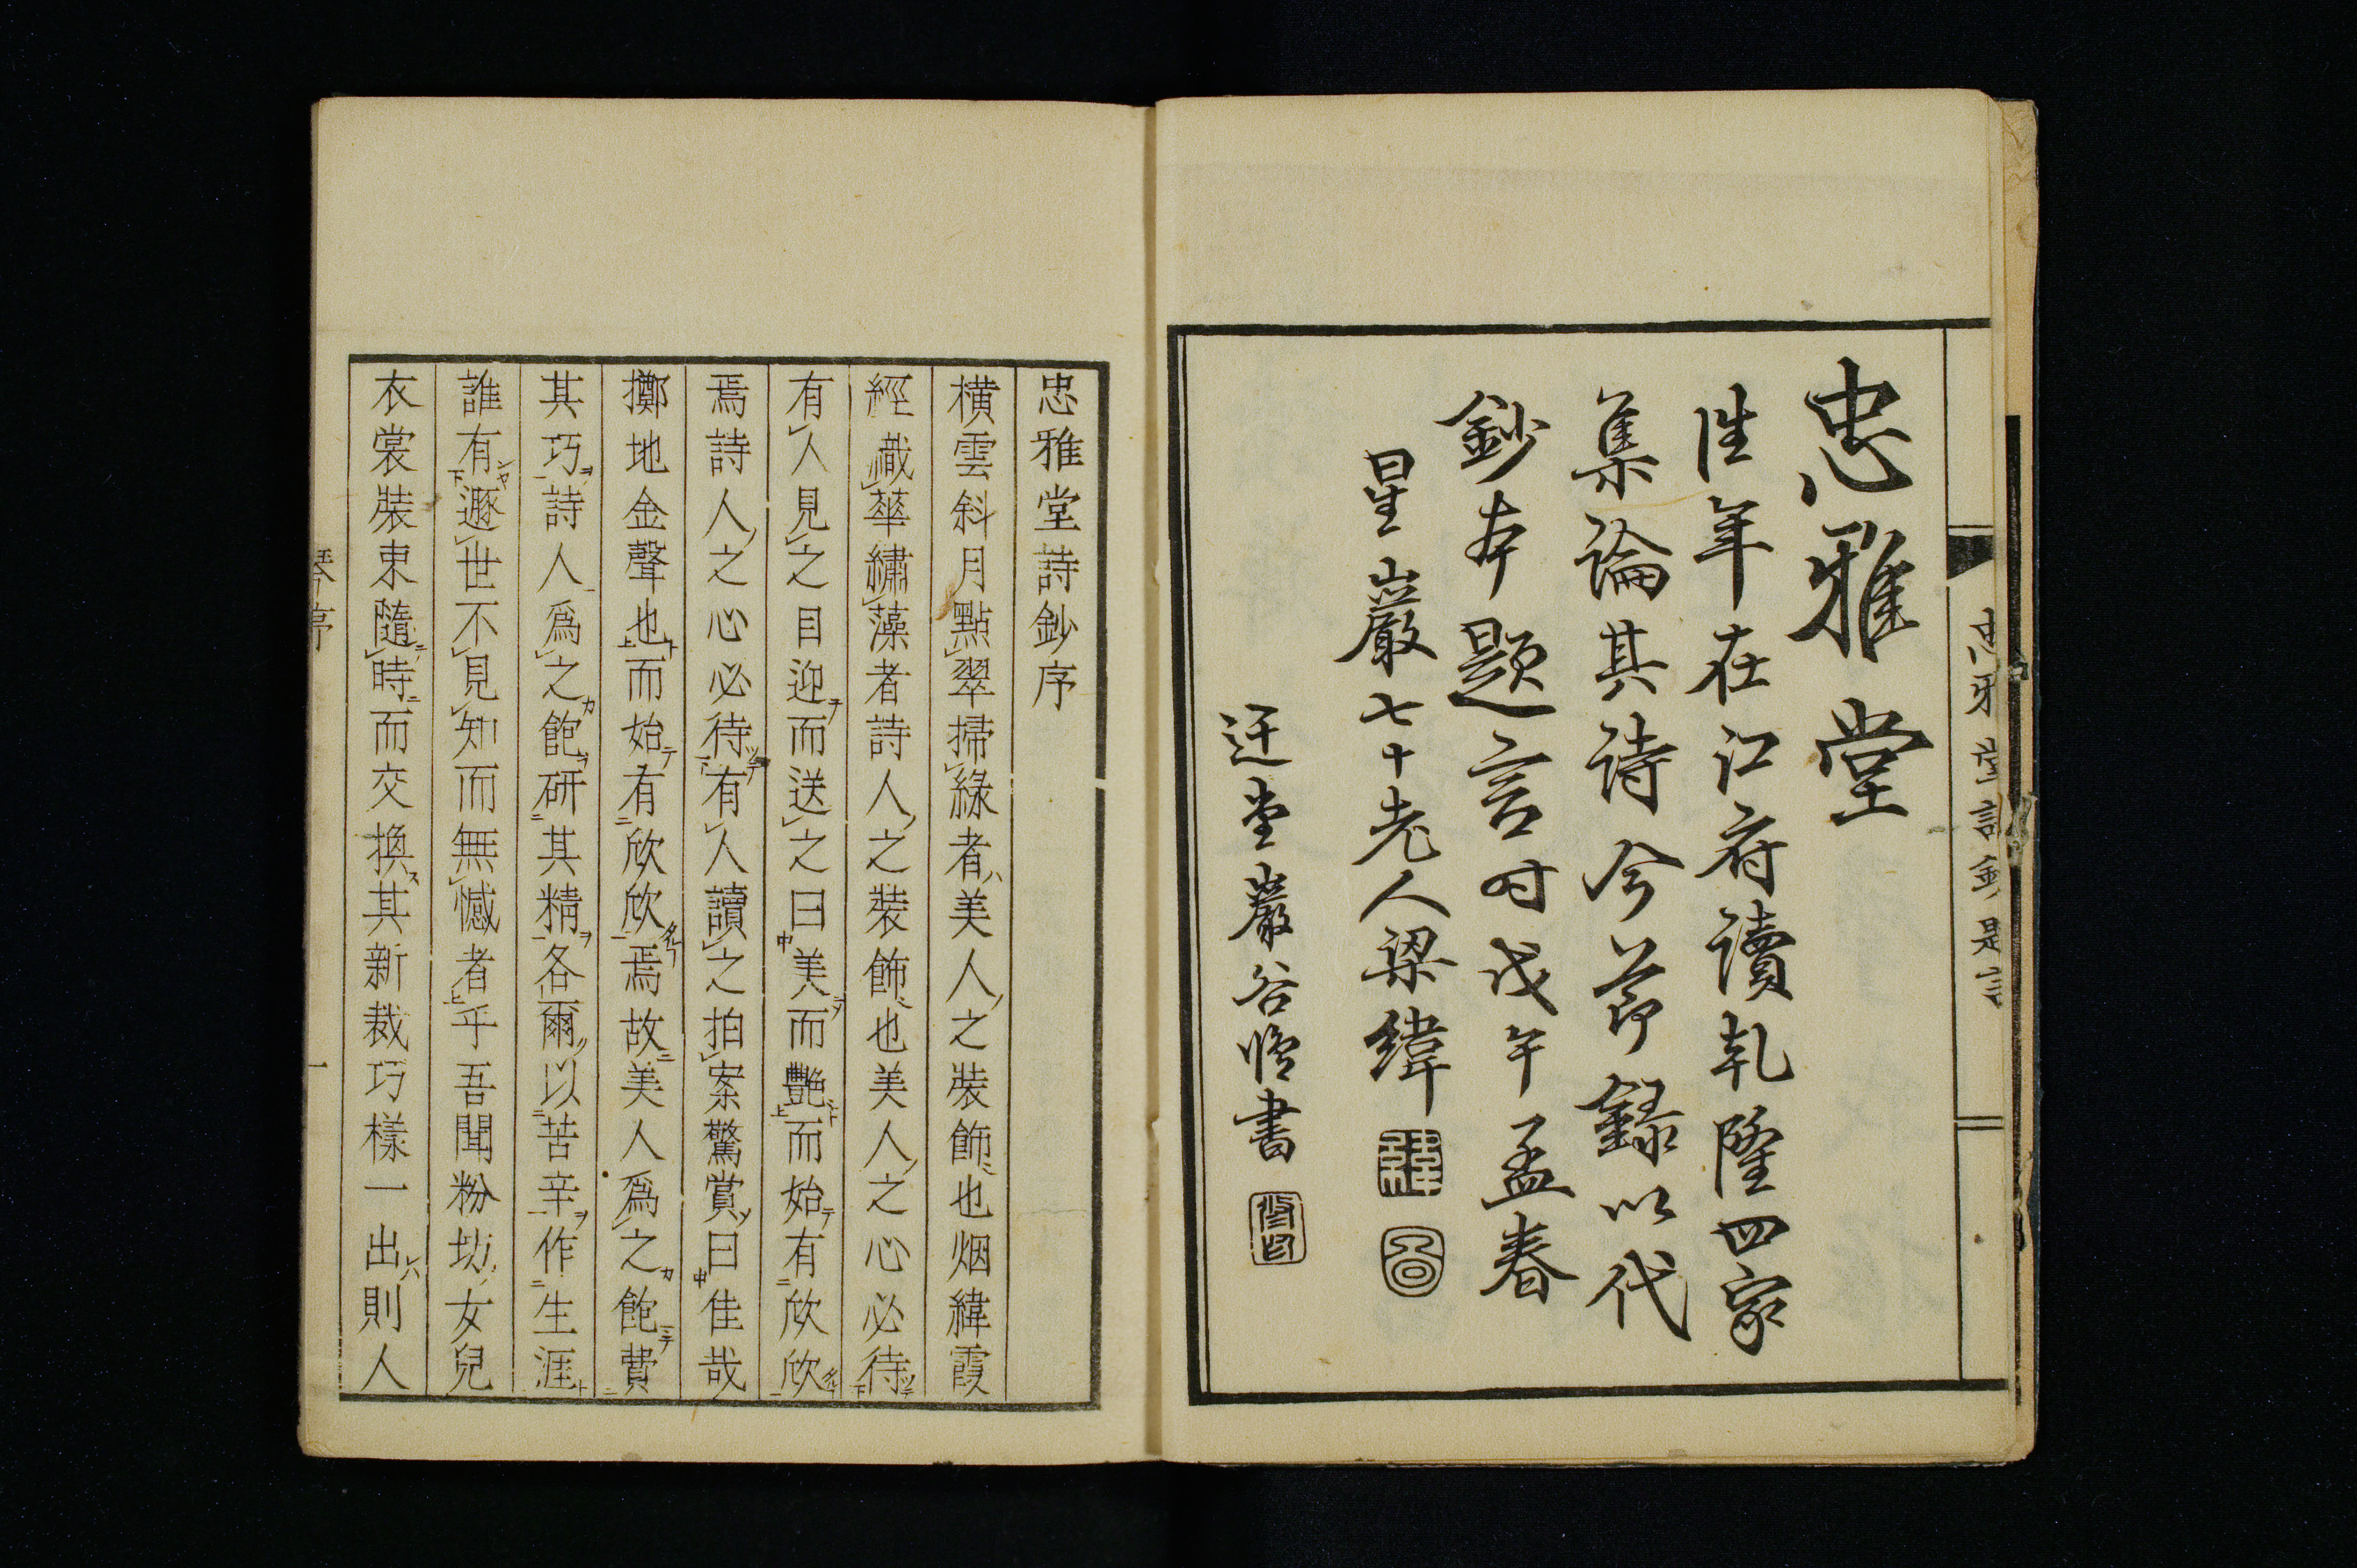 忠雅堂
往年在江府讀乹隆四家
集論其詩今節録以代
鈔本題言时戊午孟春
星巖七十老人梁緯
迂堂巖谷脩書
忠雅堂詩鈔序
橫雲斜月點翠掃綠者美人之裝飾也烟緯霞
經織華繡藻者詩人之裝飾也美人之心必待
有人見之目迎而送之曰美而艷而始有欣欣
焉詩人之心必待有人讀之拍案驚賞曰佳哉
擲地金聲也而始有欣欣焉故美人爲之飽費
其巧詩人爲之飽研其精各爾以苦辛作生涯
誰有遯世不見知而無憾者乎吾聞粉坊女兒
衣裳裝束隨時而交換其新裁巧樣一出則人